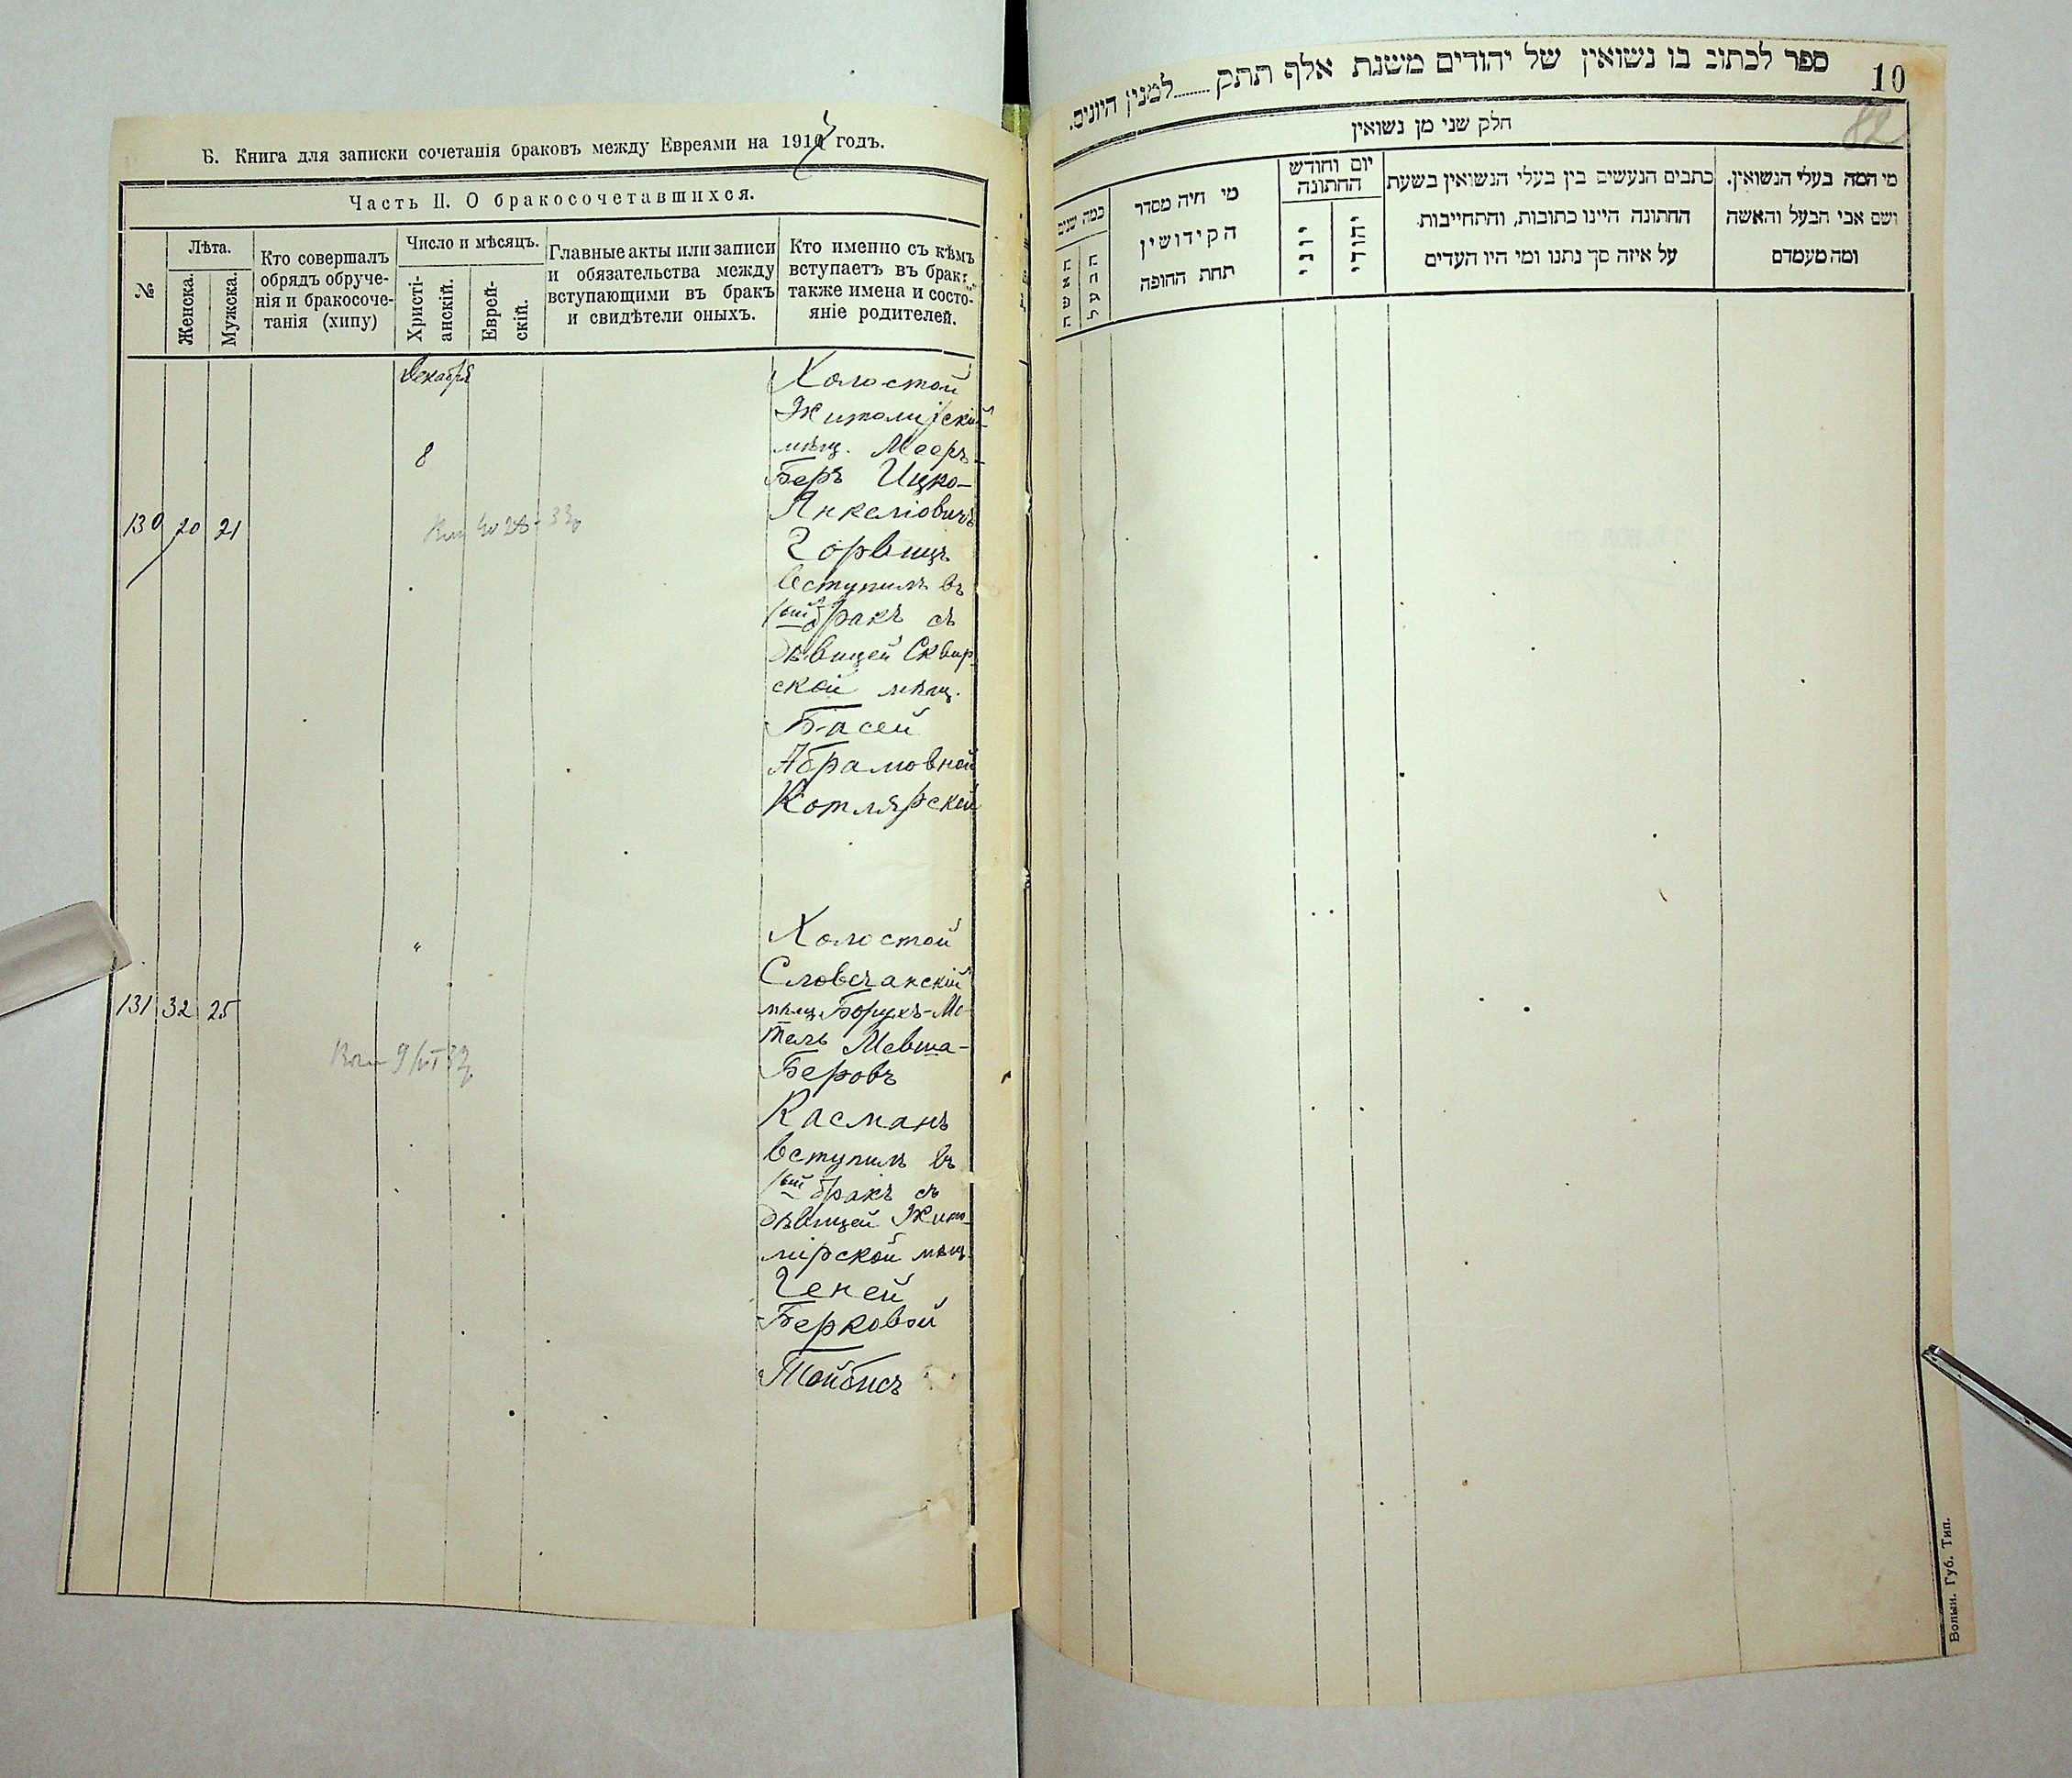 Б. Книга для записки сочетанія браковъ между Евреями на 191 годъ.
Часть II. О бракосочетавшихся.
№
Лѣта.
Женска.
Мужска.
Кто совершалъ
обрядъ обруче-
нія и бракосоче-
танія (хипу)
Число и мѣсяцъ.
Христі-
анскій.
Еврей-
скій.
Главные акты или записи
и обязательства между
вступающими въ бракъ
и свидѣтели оныхъ.
Кто именно съ кѣмъ
вступаетъ въ бракъ,
также имена и состо-
яніе родителей.
Декабря
8
130 20 21
Холостой
Житомірскій
мѣщ. Мееръ-
Беръ Ицко-
Янкеліовичъ
Горвицъ
вступилъ въ
1ый бракъ съ
дѣвицей Сквир
ской мѣщ.
Басей
Абрамовной
Котлярской
"
131 32 25
Холостой
Словечанскій
мѣщ. Борухъ-Мо-
тель Мевша-
Беровъ
Касманъ
вступилъ въ
1ый бракъ съ
дѣвицей Жито-
мірской мѣщ.
Геней
Берковой
Тойбисъ
ספר לכתוב בו נשואין של יהודים משנת אלף תתק........למנין היונים.
10
82
חלק שני מן נשואין
כמה שנים
האשה
הבעל
מי היה מסדר
הקידושין
תחת החופה
יום וחודש
החתונה
יוני
יהודי
כתבים הנעשים בין בעלי הנשואין בשעת
החתונה היינו כתובות, והתחייבות
על איזה סך נתנו ומי היו העדים
מי המה בעלי הנשואין,
ושם אבי הבעל והאשה
ומה מעמדם
Волын. Губ. Тип.